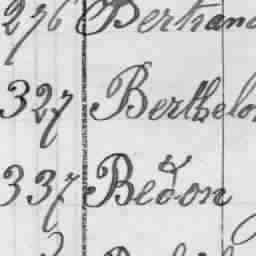 276 Bertrand
327 Berthelo
337 Bedon